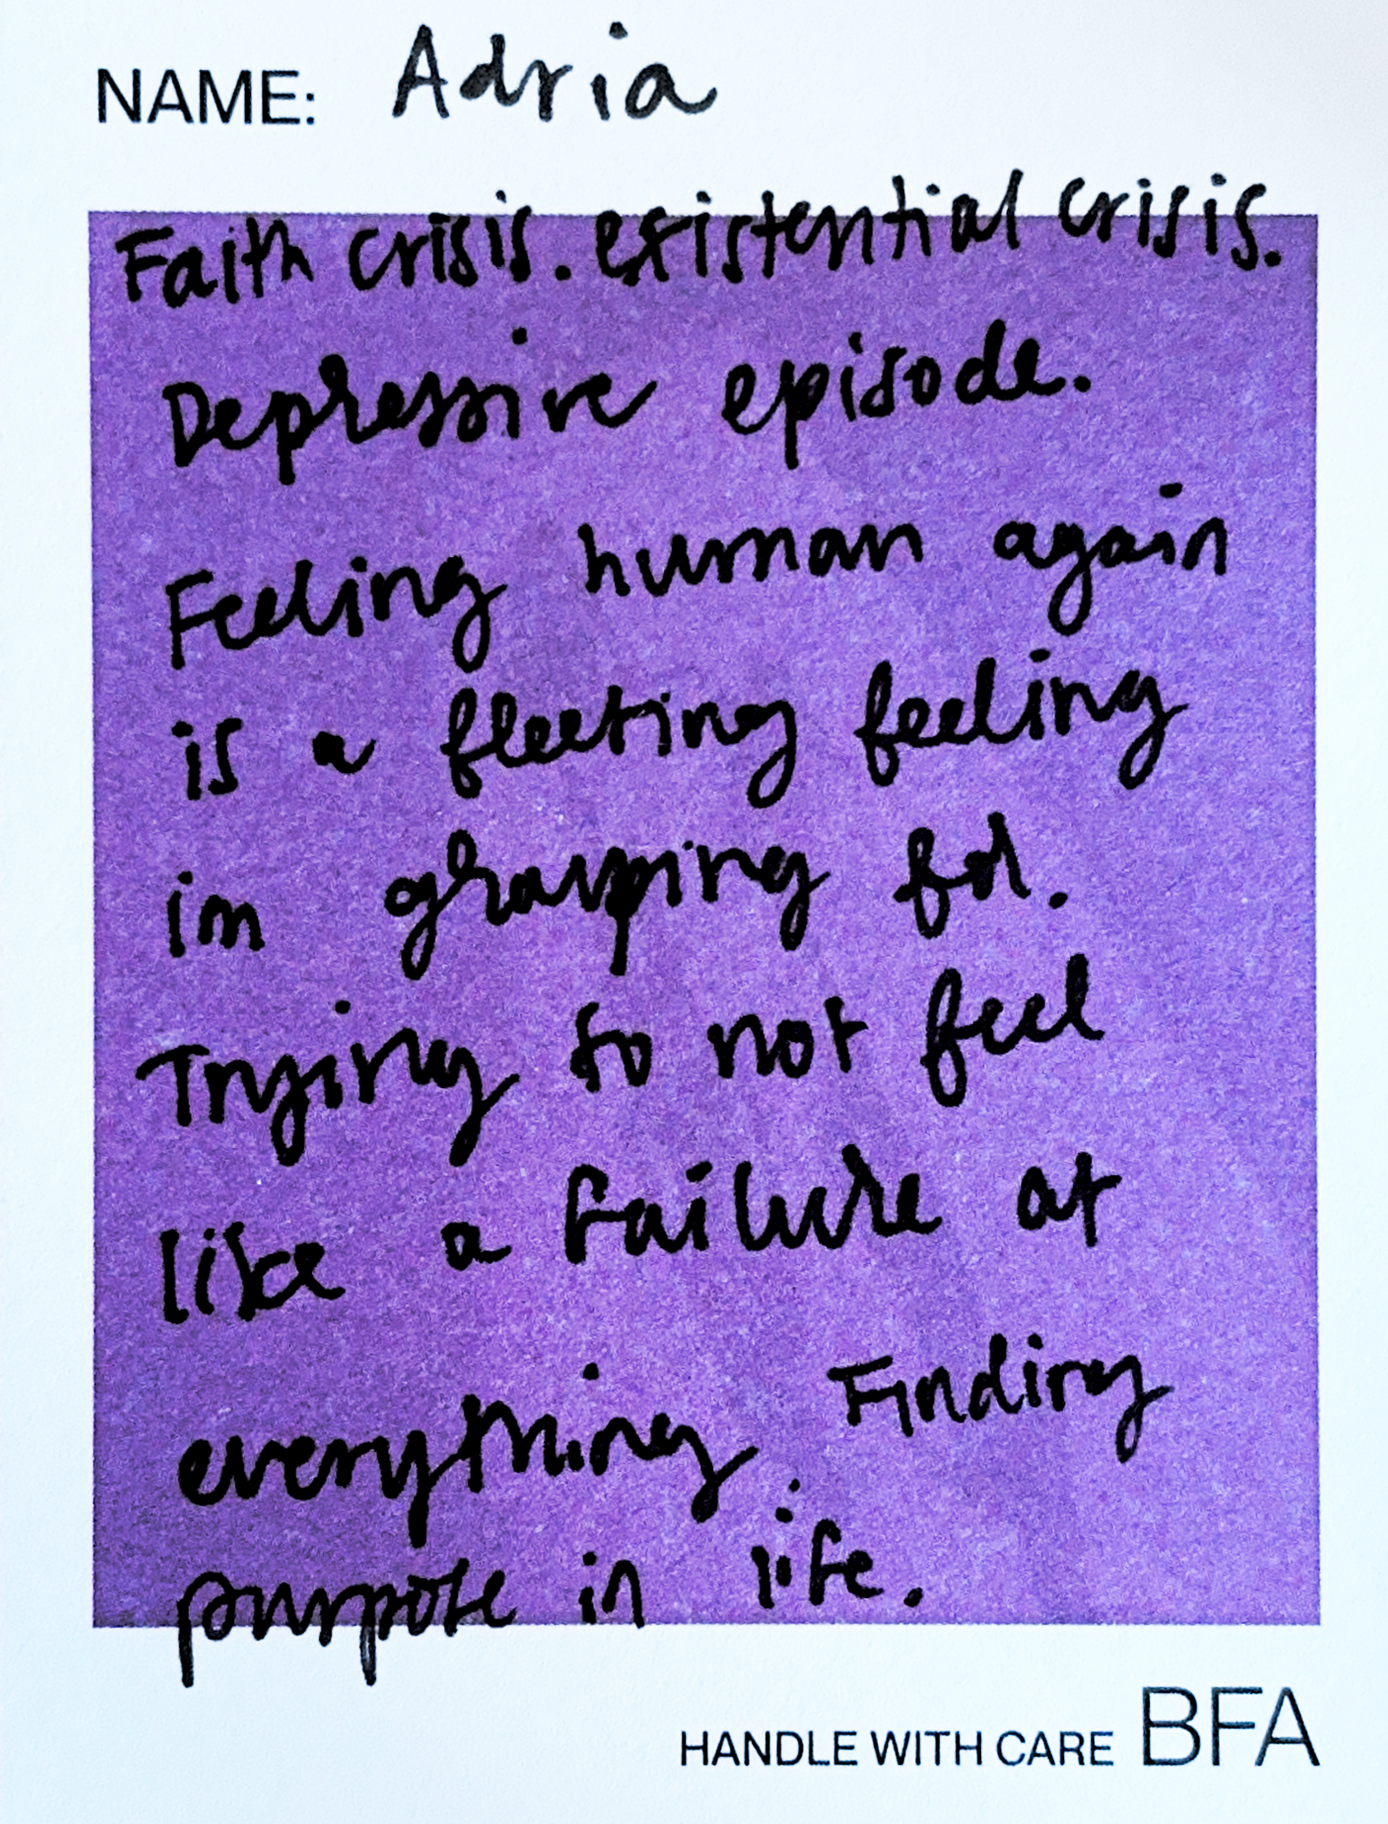 NAME: Adria
Faith crisis. existential crisis.
Depressive episode.
Feeling human again
is a fleeting feeling
im grasping for.
Trying to not feel
like a failure at
everything. Finding
purpose in life.
HANDLE WITH CARE BFA